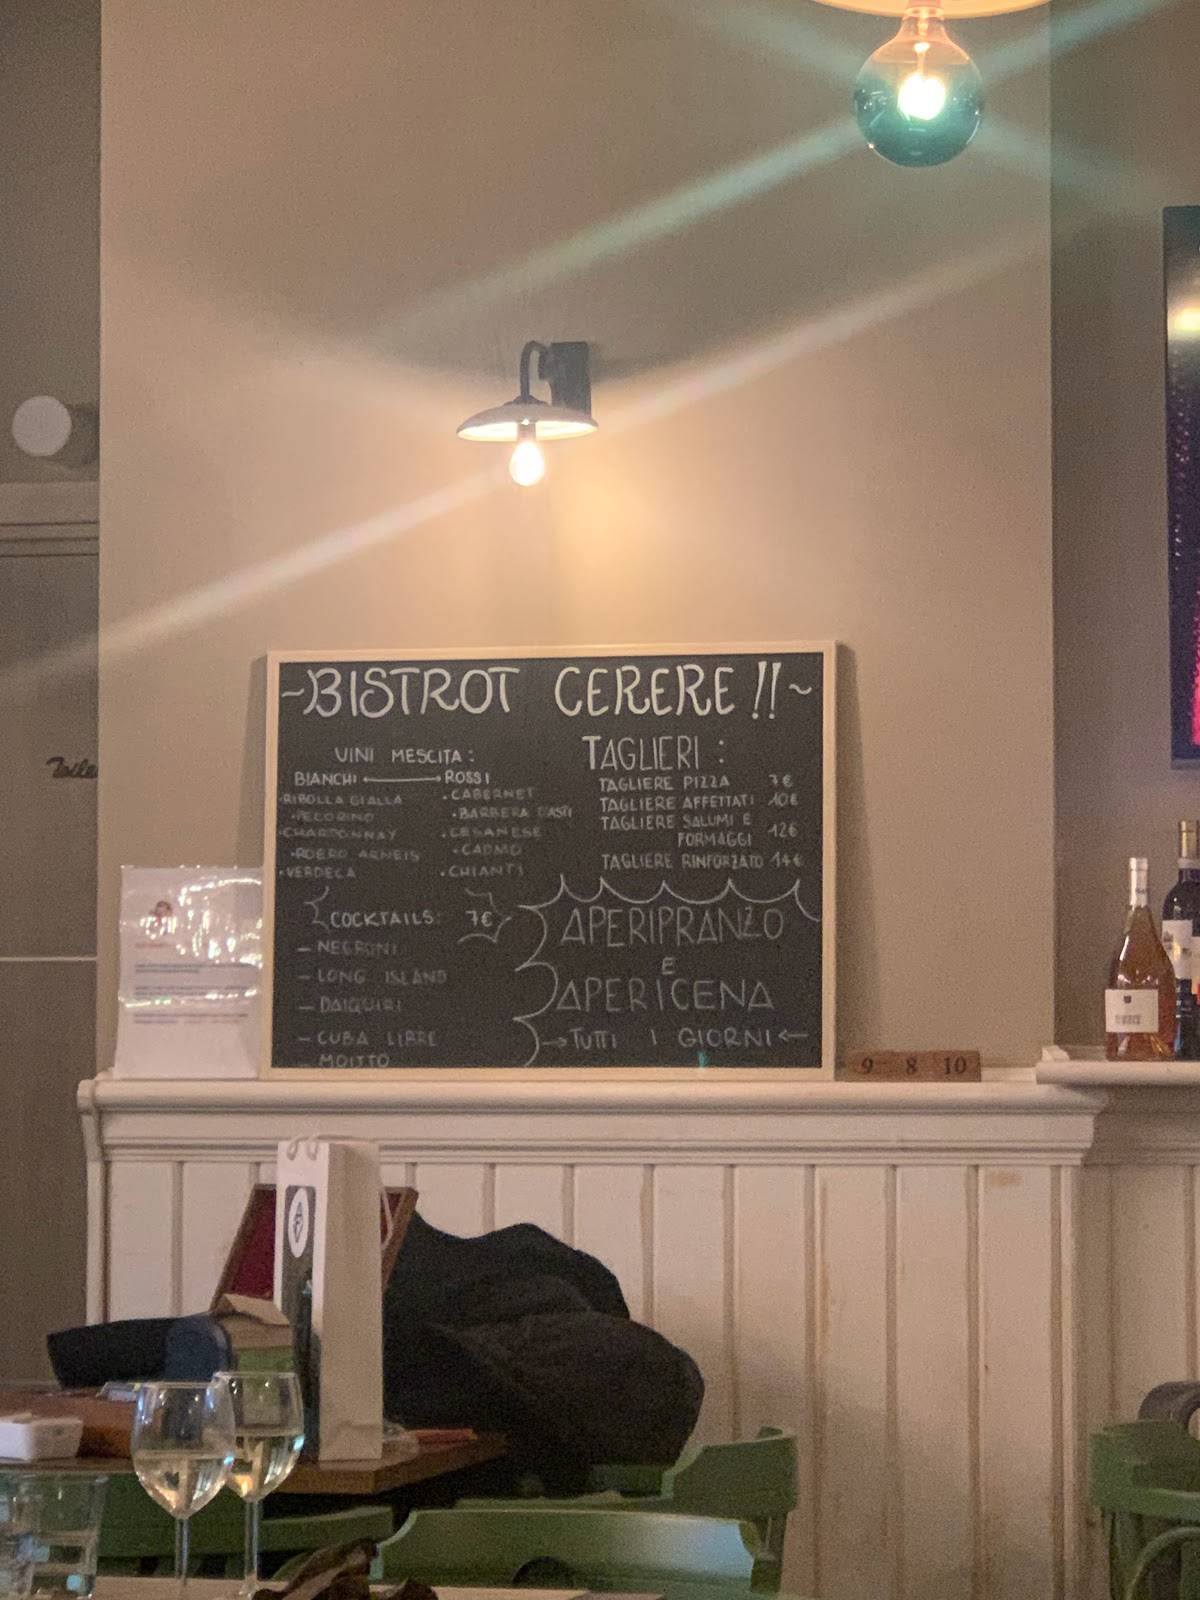 ~BISTROT CERERE!!~
VINI MESCITA:
BIANCHI ROSSI
·RIBOLLA GIALLA
·PECORINO
·CHARDONNAY
·ROERO ARNEIS
·VERDECA
·CABERNET
·BARBERA D'ASTI
·CESANESE
·CADMO
·CHIANTI
COCKTAILS: 7€
- NEGRONI
- LONG ISLAND
- DAIQUIRI
- CUBA LIBRE
- MOITTO
TAGLIERI:
TAGLIERE PIZZA 7€
TAGLIERE AFFETTATI 10€
TAGLIERE SALUMI E
FORMAGGI 12€
TAGLIERE RINFORZATO 14€
APERIPRANZO
E
APERICENA
→TUTTI I GIORNI←
9 8 10
Toile